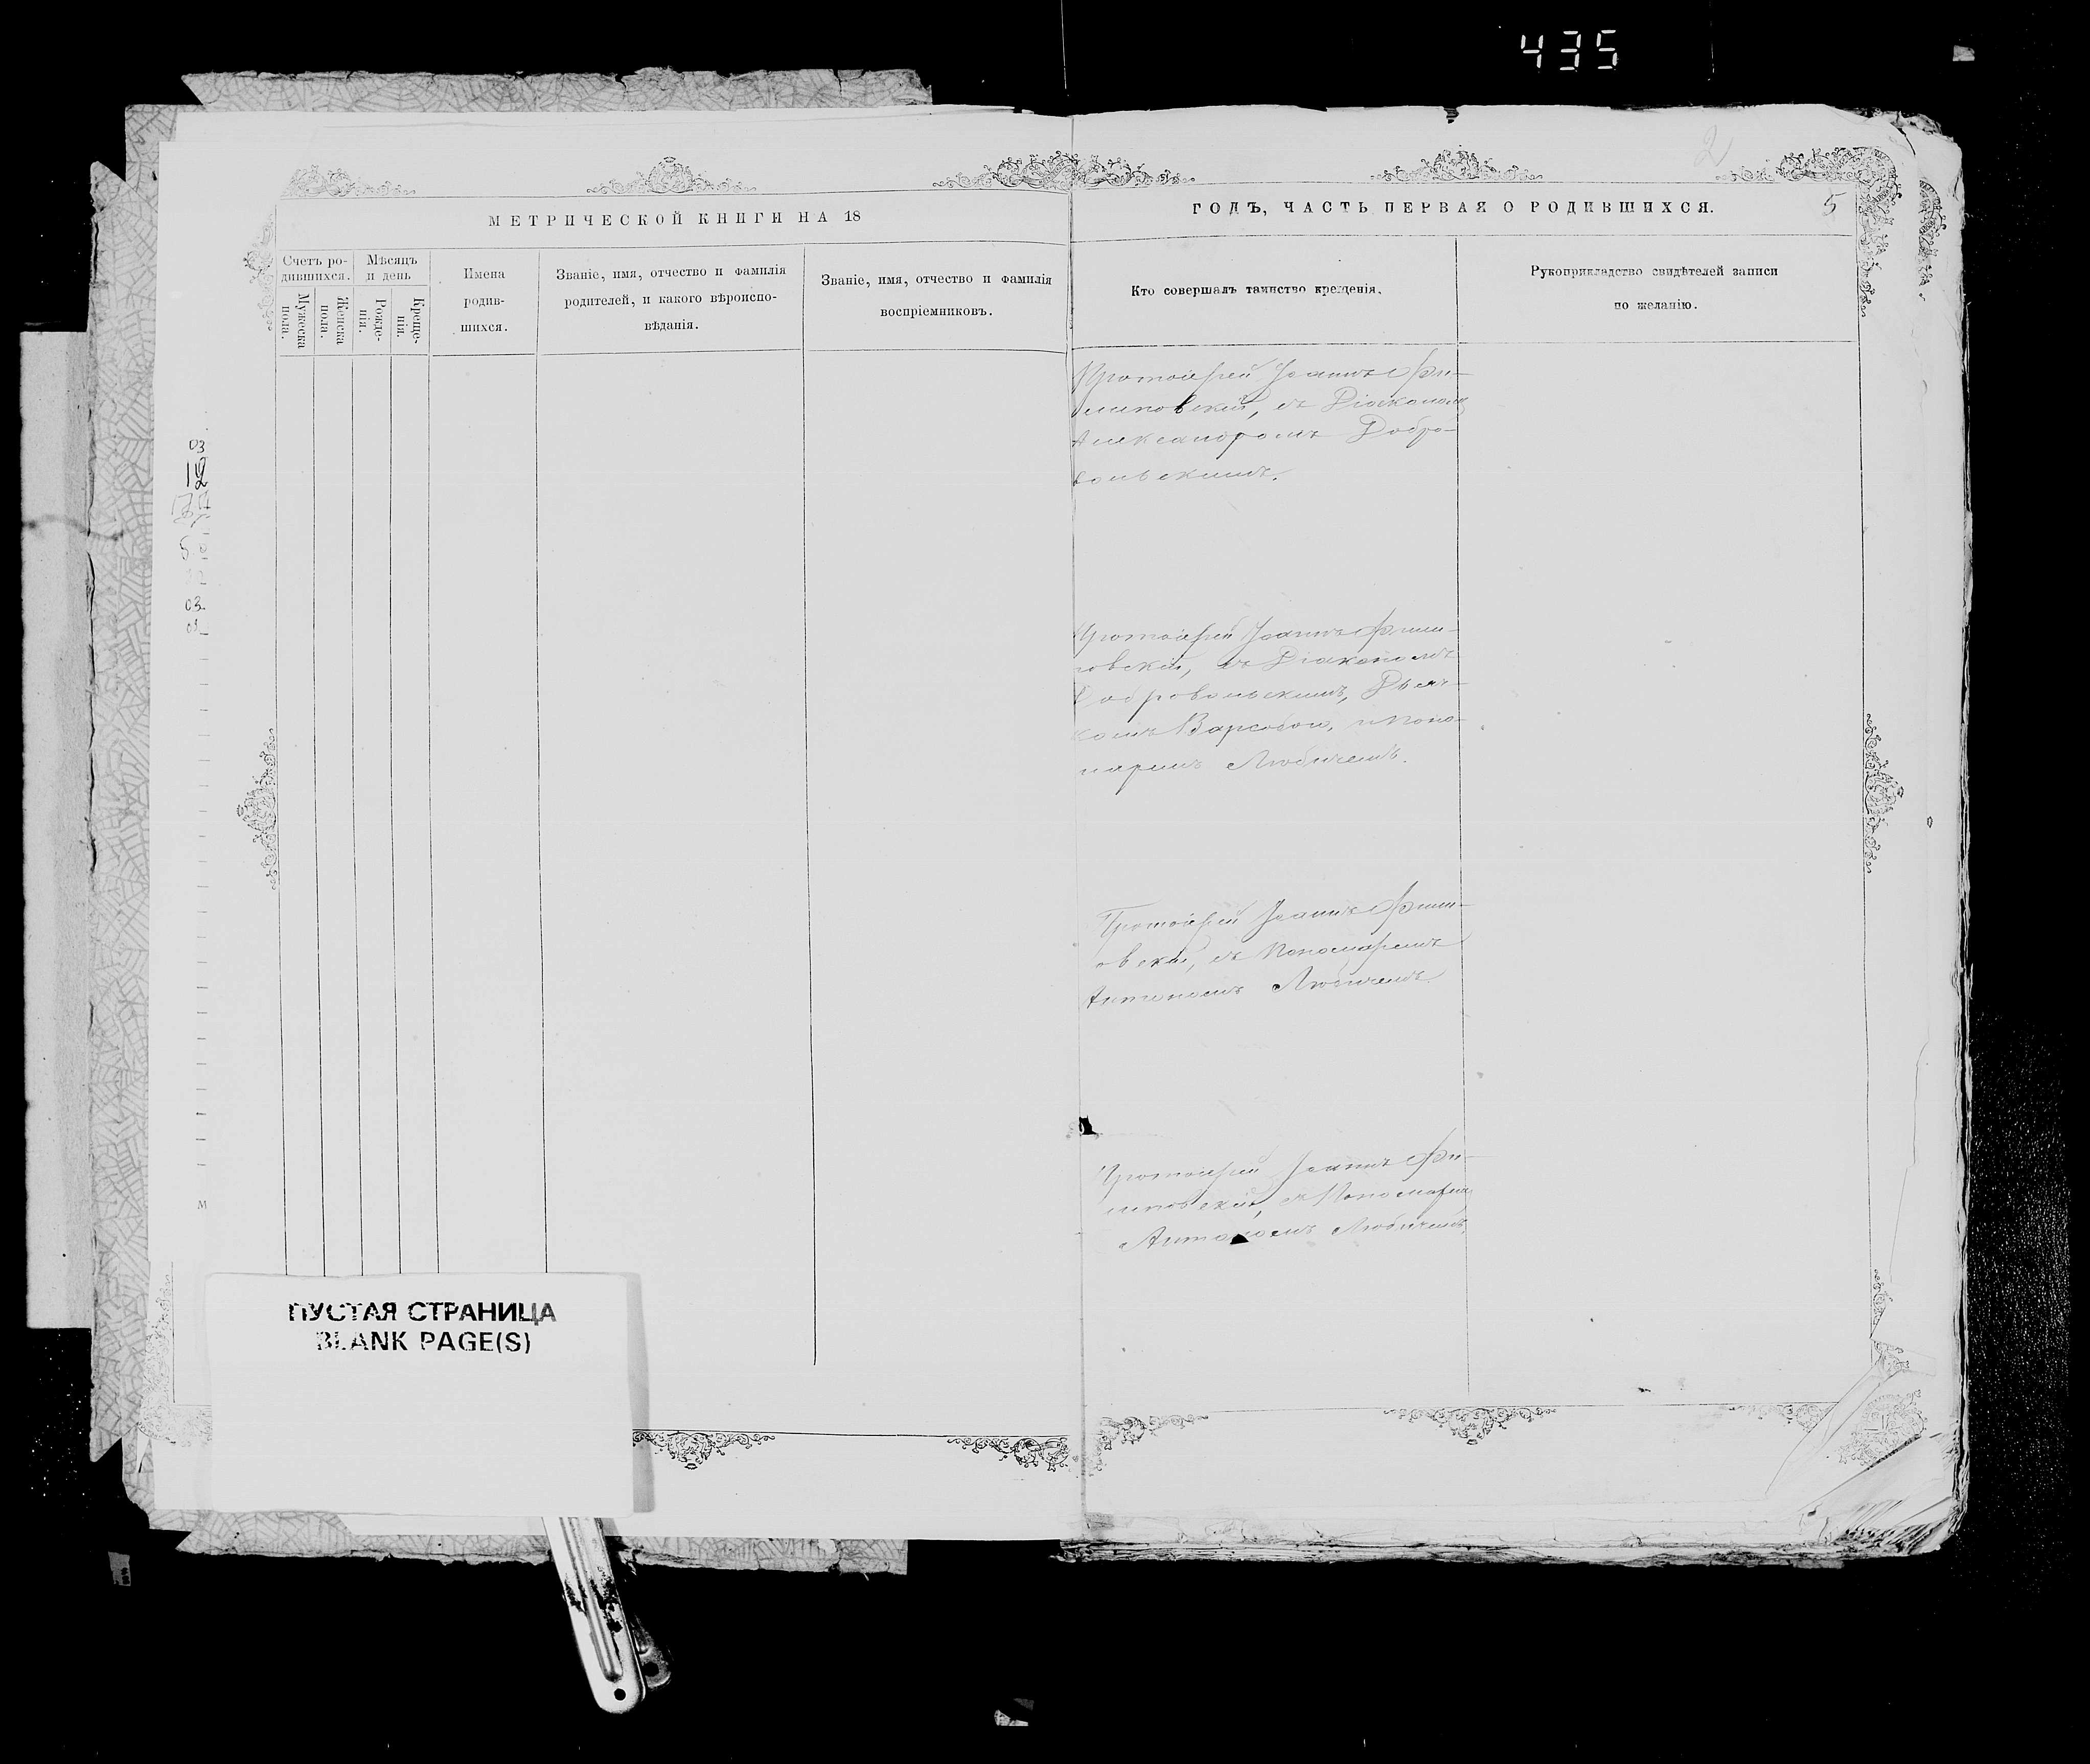 435
2
МЕТРИЧЕСКОЙ КНИГИ НА 18
ГОДЪ, ЧАСТЬ ПЕРВАЯ О РОДИВШИХСЯ.
5
Счетъ ро-
дившихся.
Мужеска
пола.
Женска
пола.
Мѣсяцъ
и день
Рожде-
нія.
Креще-
нія.
Имена
родив-
шихся.
Званіе, имя, отчество и фамилія
родителей, и какого вѣроиспо-
вѣданія.
Званіе, имя, отчество и фамилія
воспріемниковъ.
Кто совершалъ таинство крещенія.
Рукоприкладство свидѣтелей записи
по желанію.
Протоіерей Іоаннъ Фи-
липовскій, съ Діакономъ
Александромъ Добро-
вольскимъ.
Протоіерей Іоаннъ Филип-
повскій, съ Діакономъ
Добровольскимъ, Дьяч-
комъ и Поно-
маремъ Любичемъ.
Протоіерей Іоаннъ Филип-
овскій, съ Пономаремъ
Антономъ Любичемъ.
Протоіерей Іоаннъ Фи-
липовскій, съ Пономаремъ
Антономъ Любичемъ.
03
03
М
ПУСТАЯ СТРАНИЦА
BLANK PAGE(S)